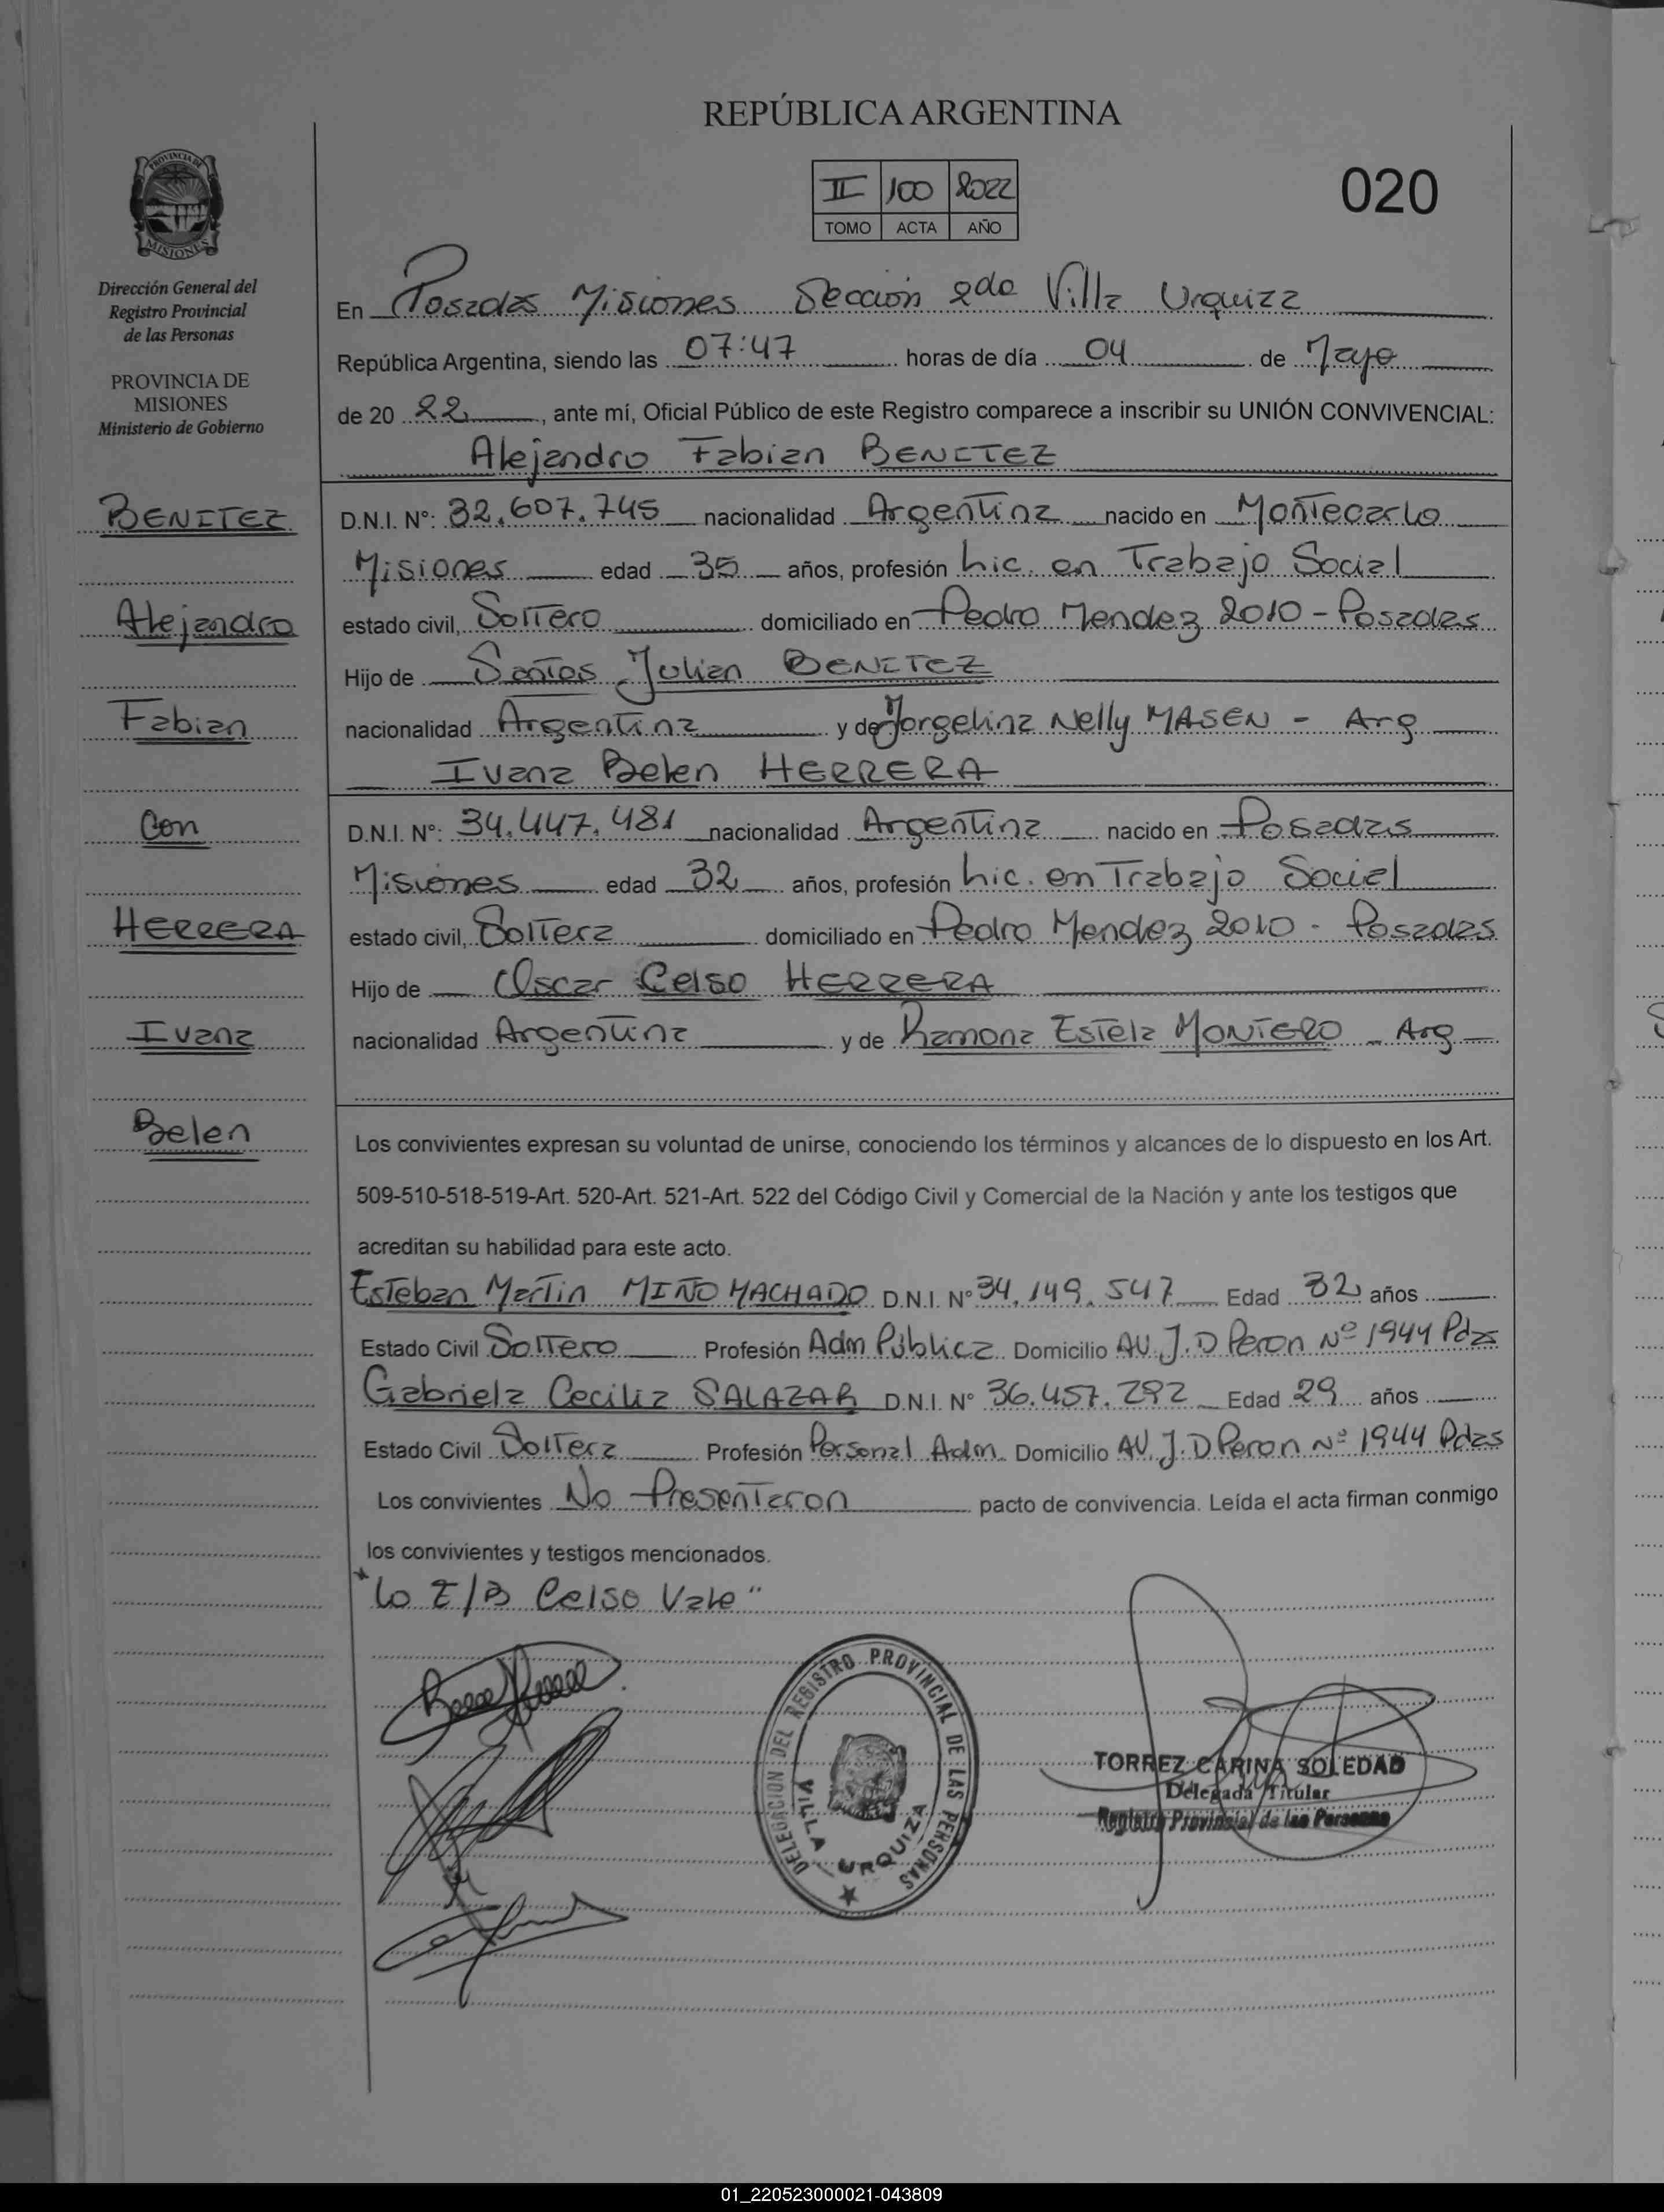 REPÚBLICA ARGENTINA
II 100 2022
TOMO ACTA AÑO
020
PROVINCIA DE
MISIONES
Dirección General del
Registro Provincial
de las Personas
PROVINCIA DE
MISIONES
Ministerio de Gobierno
En Posadas Misiones Sección 2do Villa Urquiza
República Argentina, siendo las 07:47 horas de día 04 de Mayo
de 20 22, ante mí, Oficial Público de este Registro comparece a inscribir su UNIÓN CONVIVENCIAL:
Alejandro Fabian BENITEZ
BENITEZ
Alejandro
Fabian
Con
HERRERA
Ivana
Belen
D.N.I. Nº: 32.607.745 nacionalidad Argentina nacido en Montecarlo
Misiones edad 35 años, profesión Lic. en Trabajo Social
estado civil, Soltero domiciliado en Pedro Mendez 2010 - Posadas
Hijo de Santos Julian BENITEZ
nacionalidad Argentina y de Jorgelina Nelly MASEN - Arg
Ivana Belen HERRERA
D.N.I. Nº: 34.447.481 nacionalidad Argentina nacido en Posadas
Misiones edad 32 años, profesión Lic. en Trabajo Social
estado civil, Soltera domiciliado en Pedro Mendez 2010 - Posadas
Hijo de Oscar Celso HERRERA
nacionalidad Argentina y de Ramona Estela MONTERO - Arg
Los convivientes expresan su voluntad de unirse, conociendo los términos y alcances de lo dispuesto en los Art.
509-510-518-519-Art. 520-Art. 521-Art. 522 del Código Civil y Comercial de la Nación y ante los testigos que
acreditan su habilidad para este acto.
Esteban Martin MIÑO MACHADO D.N.I. Nº 34.149.547 Edad 32 años
Estado Civil Soltero Profesión Adm Pública Domicilio AV. J. D Peron Nº 1944 Pdas
Gabriela Cecilia SALAZAR D.N.I. Nº 36.457.292 Edad 29 años
Estado Civil Soltera Profesión Personal Adm Domicilio AV. J. D Peron Nº 1944 Pdas
Los convivientes No Presentaron pacto de convivencia. Leída el acta firman conmigo
los convivientes y testigos mencionados.
"Lo E/B Celso Vale"
DELEGACION DEL REGISTRO PROVINCIAL DE LAS PERSONAS
VILLA URQUIZA
TORREZ CARINA SOLEDAD
Delegada Titular
Registro Provincial de las Personas
01_220523000021-043809